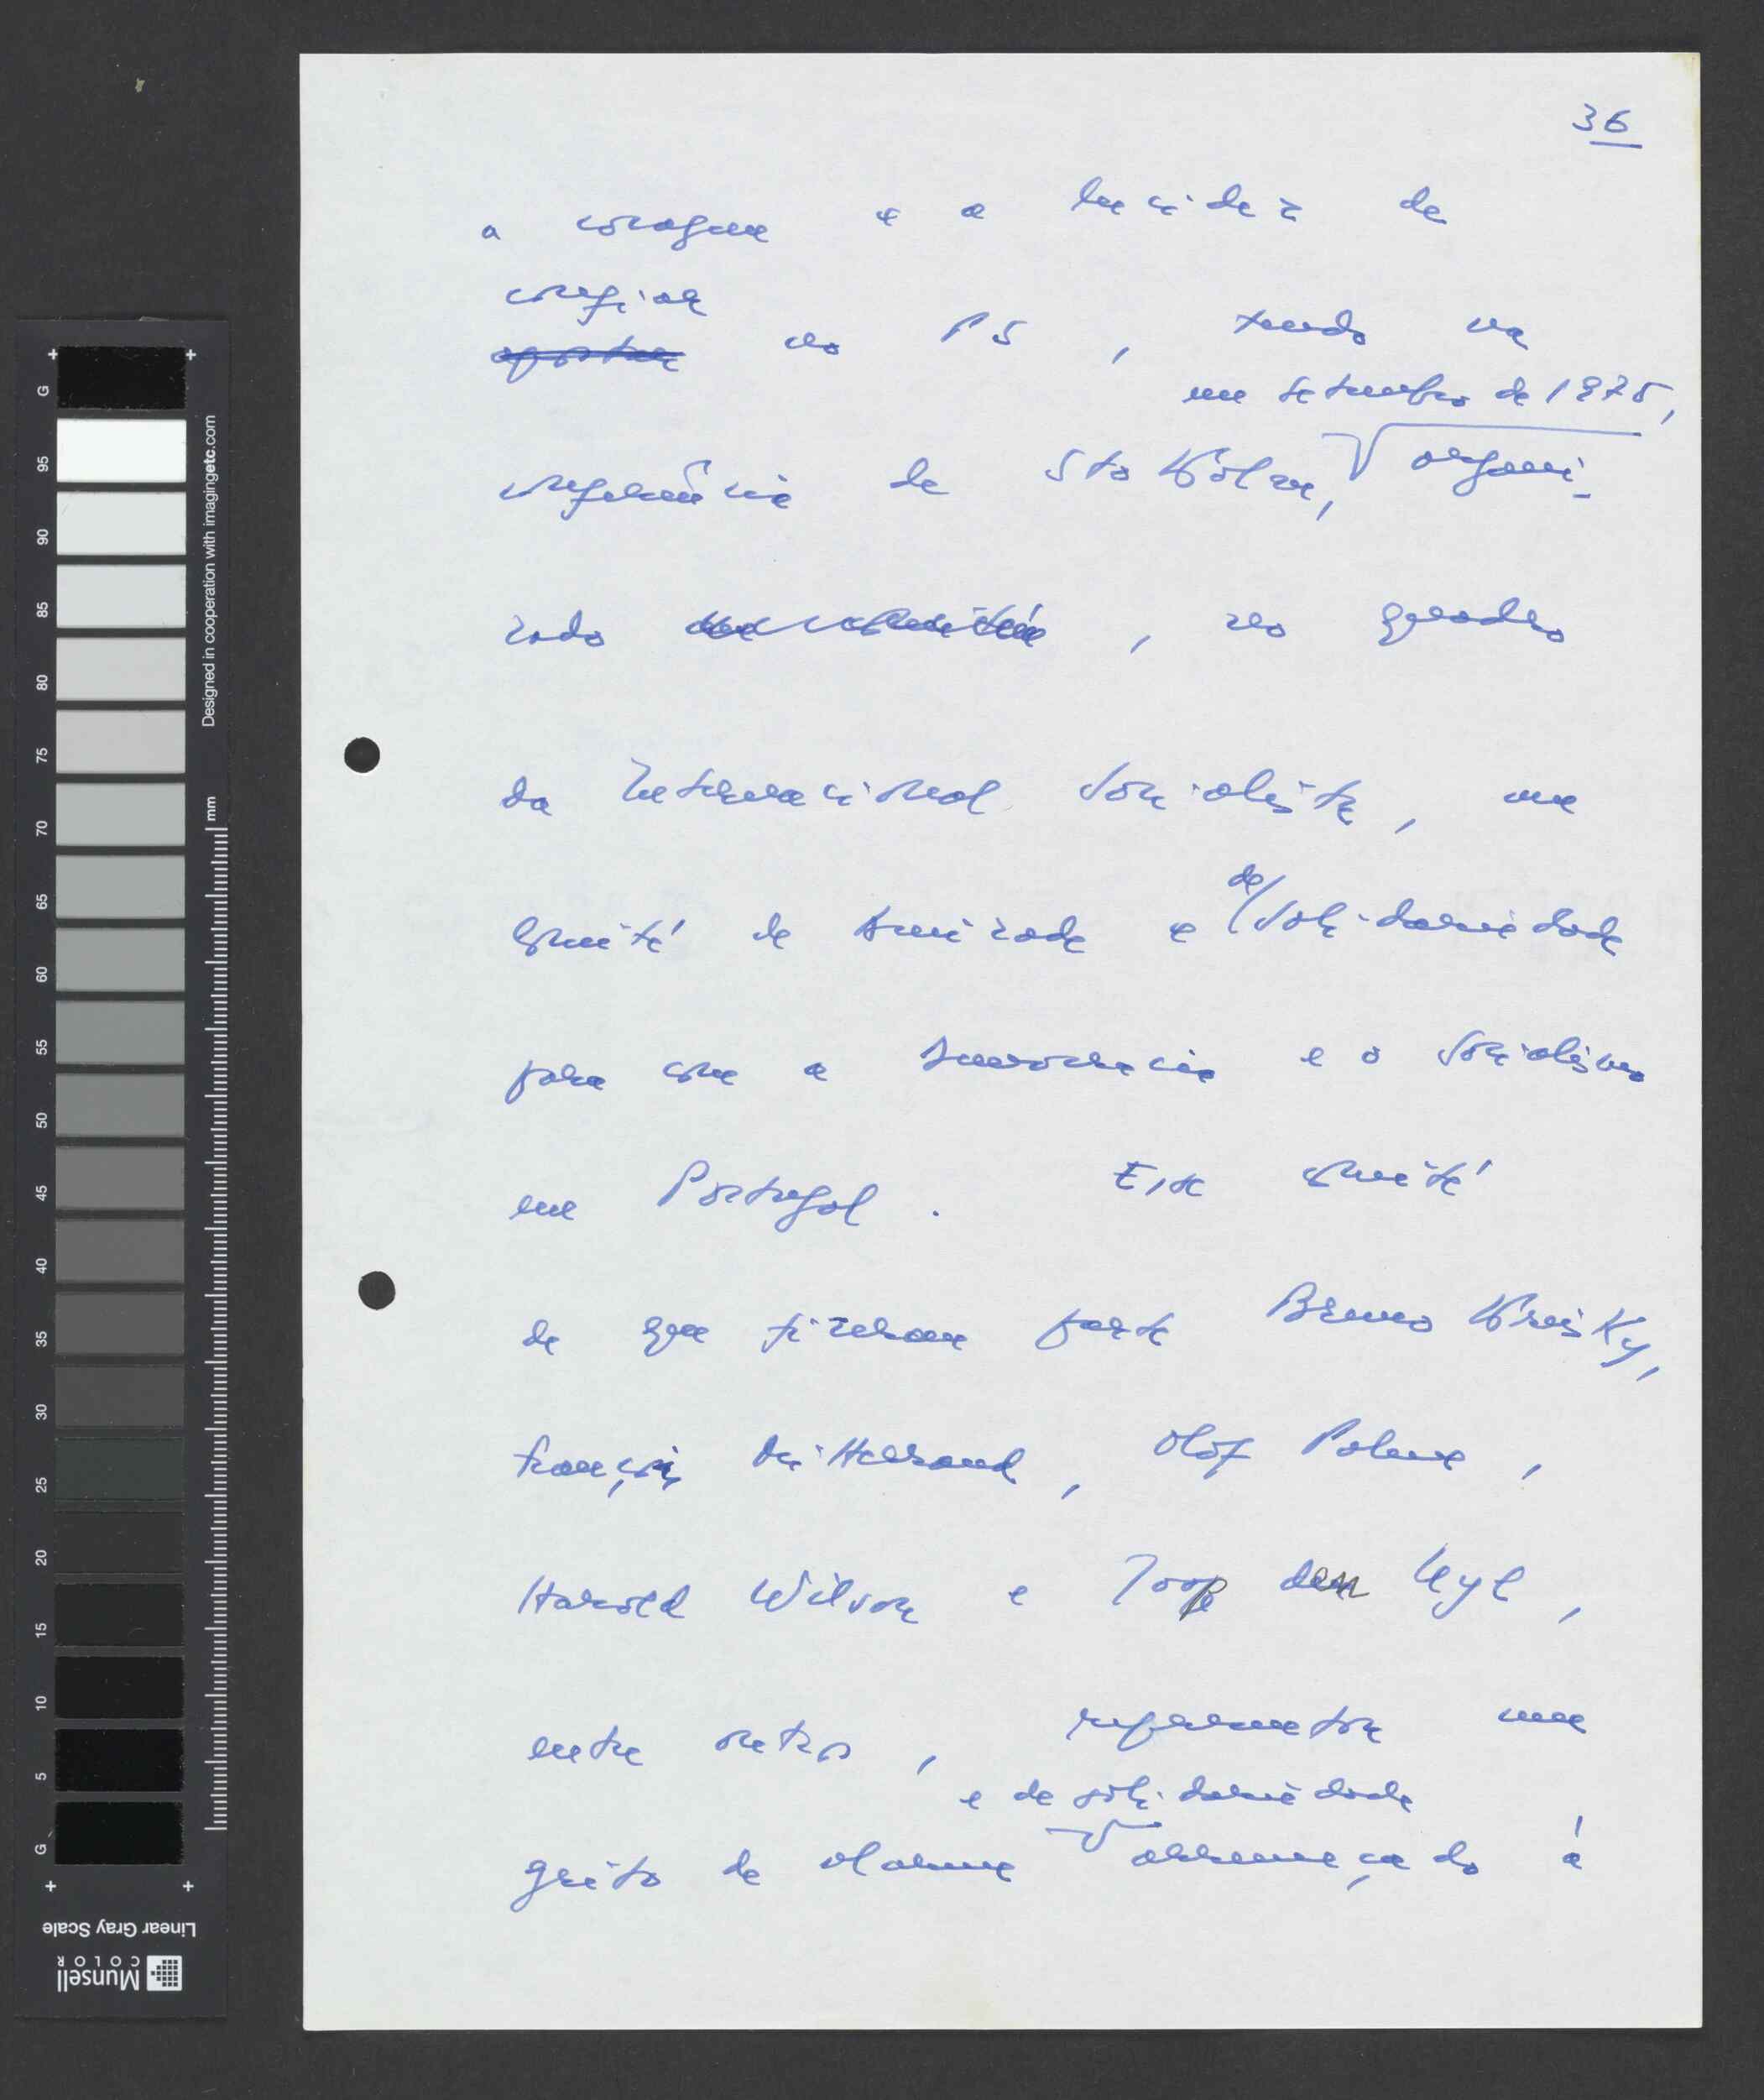 36
a coragem e a lucidez de
confiar
apostar no PS, tendo na
em Setembro de 1975,
conferência de Stokolm, organi-
zado um comité, no quadro
da Internacional Socialista, um
Comité de Amizade e de Solidariedade
para com a Democracia e o Socialismo
em Portugal. Esse comité
de que fizeram parte Bruno Kreisky,
François Mitterrand, Olof Palme,
Harold Wilson e Joop den Uyl,
entre outros, representou um
e de solidariedade
grito de alarme arremeçado à
G 95 90 85 80 75 70 65 60 55 50 45 40 35 30 25 20 15 10 5 G
Designed in cooperation with imagingetc.com
mm
Linear Gray Scale
Munsell
COLOR